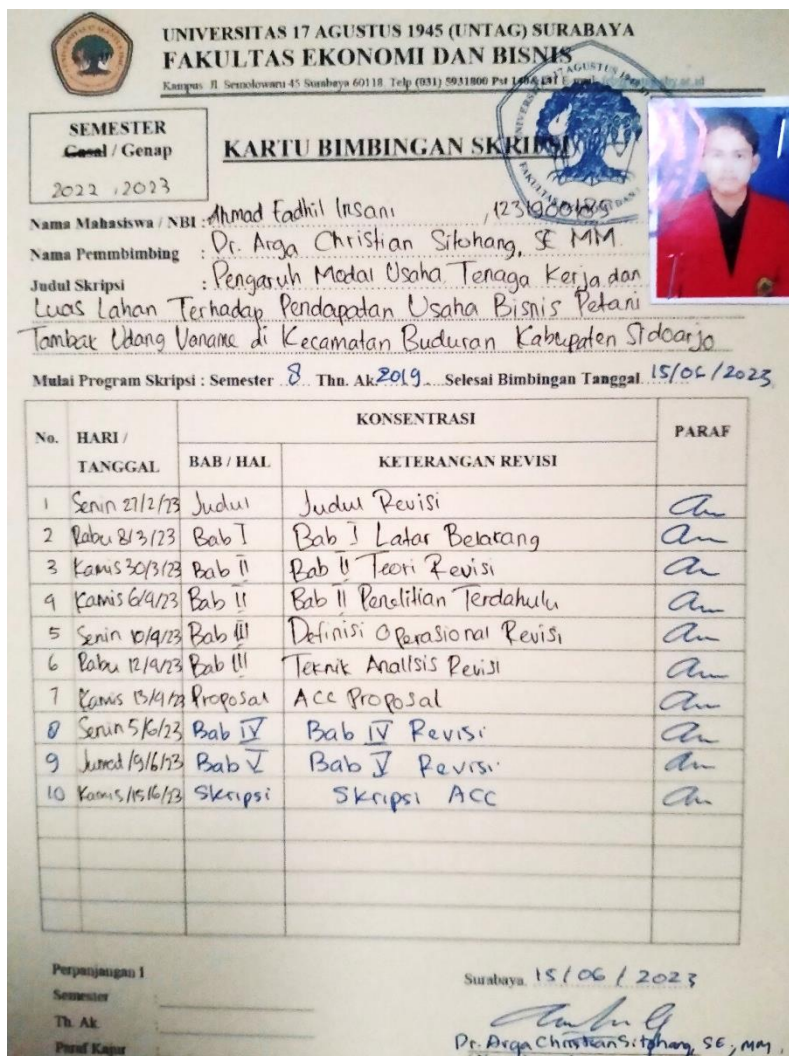 UNIVERSITAS 17 AGUSTUS 1945 (UNTAG) SURABAYA
FAKULTAS EKONOMI DAN BISNIS
Kampus Jl. Semolowaru 45 Surabaya 60118 Telp (031) 5931800 Pst
SEMESTER
Gasal / Genap
2022 / 2023
KARTU BIMBINGAN SKRIPSI
Nama Mahasiswa / NBI : Ahmad Fadhil Insani , 1231900189
Nama Pemmbimbing : Dr. Arga Christian Sitohang, SE MM.
Judul Skripsi : Pengaruh Modal Usaha Tenaga Kerja dan
Luas Lahan Terhadap Pendapatan Usaha Bisnis Petani
Tambak Udang Vaname di Kecamatan Buduran Kabupaten Sidoarjo
Mulai Program Skripsi : Semester 8 Thn. Ak 2019 Selesai Bimbingan Tanggal 15/06/2023
No. HARI / TANGGAL KONSENTRASI PARAF
BAB / HAL KETERANGAN REVISI
1 Senin 27/2/23 Judul Judul Revisi
2 Rabu 8/3/23 Bab I Bab I Latar Belakang
3 Kamis 30/3/23 Bab II Bab II Teori Revisi
4 Kamis 6/4/23 Bab II Bab II Penelitian Terdahulu
5 Senin 10/4/23 Bab III Definisi Operasional Revisi
6 Rabu 12/4/23 Bab III Teknik Analisis Revisi
7 Kamis 13/4/23 Proposal ACC Proposal
8 Senin 5/6/23 Bab IV Bab IV Revisi
9 Jumat /9/6/23 Bab V Bab V Revisi
10 Kamis /15/6/23 Skripsi Skripsi ACC
Perpanjangan 1
Semester :
Th. Ak :
Paraf Kajur
Surabaya, 15 / 06 / 2023
Dr. Arga Christian Sitohang, SE, MM.